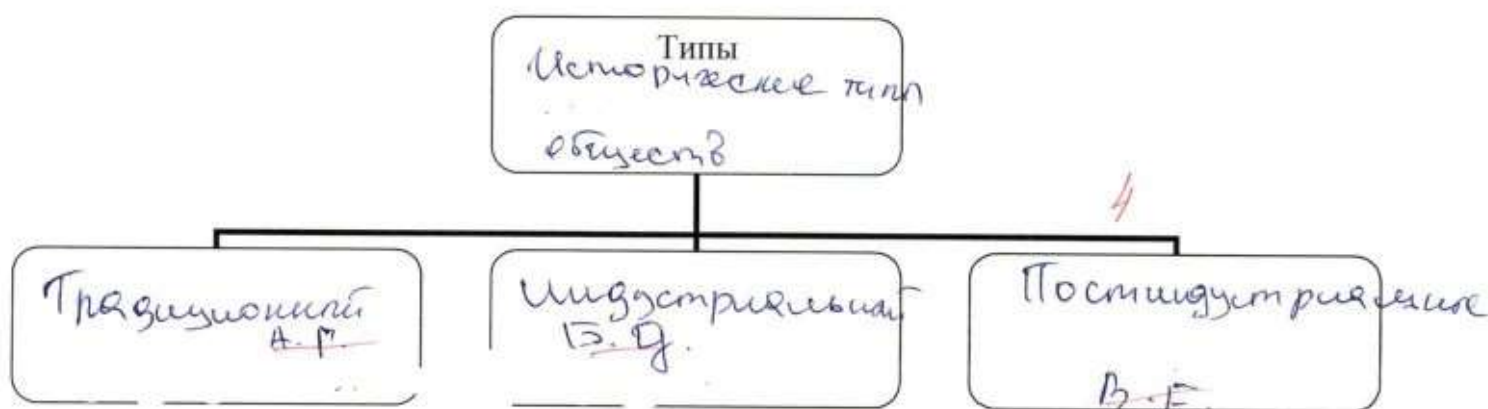 Типы
Исторические типы
обществ
4
Традиционный
А. Г.
Индустриальный
Б. Д.
Постиндустриальное
В. Е.